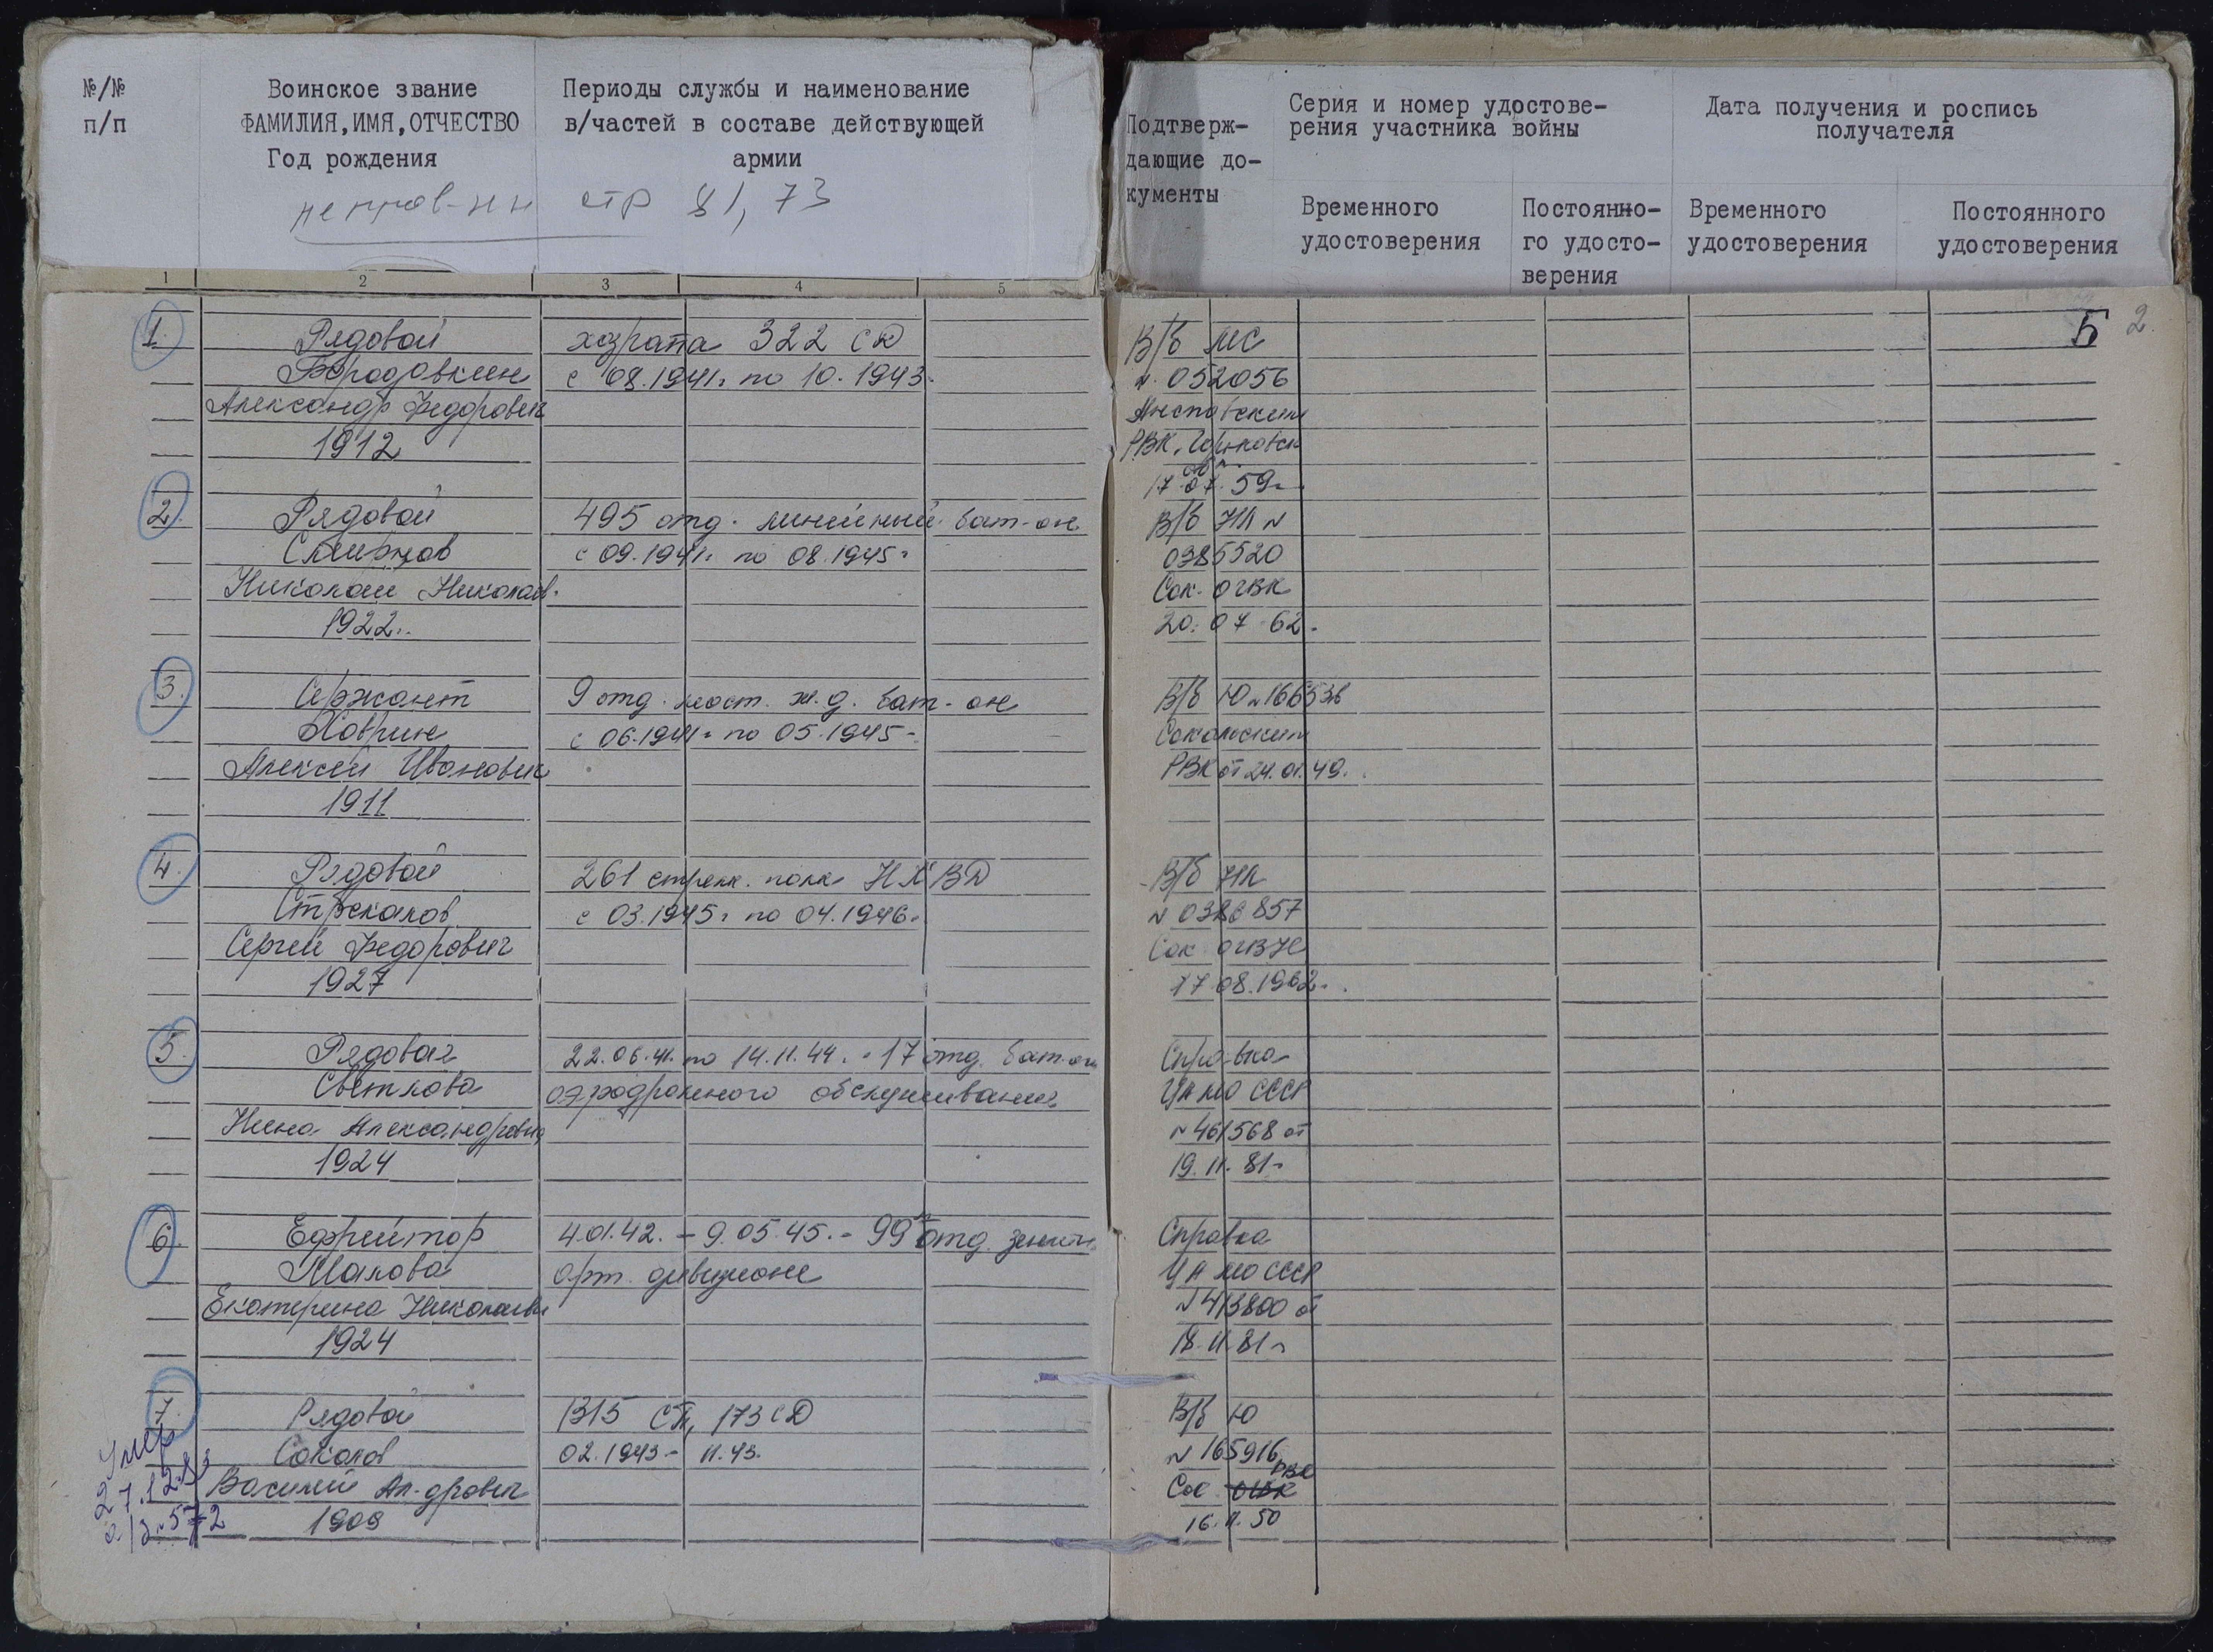 №/№
п/п
Воинское звание
ФАМИЛИЯ,ИМЯ,ОТЧЕСТВО
Год рождения
Периоды службы и наименование
в/частей в составе действующей
армии
стр 81, 73
Подтверж-
дающие до-
кументы
Серия и номер удостове-
рения участника войны
Дата получения и роспись
получателя
Временного
удостоверения
Постоянно-
го удосто-
верения
Временного
удостоверения
Постоянного
удостоверения
1 2 3 4 5
Б 2.
1.
Рядовой
Бородавкин
Александр Федорович
1912
хозрота 322 СД
с 08.1941г по 10.1943г
В/б МС
№ 052056
РВК, Горьковск
обл.
17.07.59г.
2.
Рядовой
Смирнов
Николай Николаев.
1922г.
495 отд. линейный бат-он
с 09.1941г по 08.1945г
В/б НЛ №
0385520
Сок. ОГВК
20.07.62г
3.
Сержант
Ховрин
Алексей Иванович
1911
9 отд. мост. ж.д. бат-он
с 06.1941г по 05.1945г
В/б Ю № 166536
Сокольским
РВК от 24.01.49г.
4.
Рядовой
Стрекалов
Сергей Федорович
1927
261 стрелк. полк НКВД
с 03.1945г по 04.1946г
В/б НЛ
№ 0386857
Сок. ОГВК
17.08.1962г.
5.
Рядовая
Светлова
Нина Александровна
1924
22.06.41. по 14.11.44. - 17 отд. бат-он
аэродромного обслуживания
Справка
ЦА МО СССР
№ 461568 от
19.11.81г
6.
Ефрейтор
Малова
Екатерина Николаевн
1924
4.01.42. - 9.05.45. - 99 отд. зенитн.
арт. дивизионе
Справка
ЦА МО СССР
№ 413800 от
18.11.81г
7.
Рядовой
Соколов
Василий Ал-дрович
1909
1315 СП, 173 СД
02.1943 - 11.43.
В/б Ю
№ 165916
РВК
Сок. ОГВК
16.11.50
Умер
27.12.83